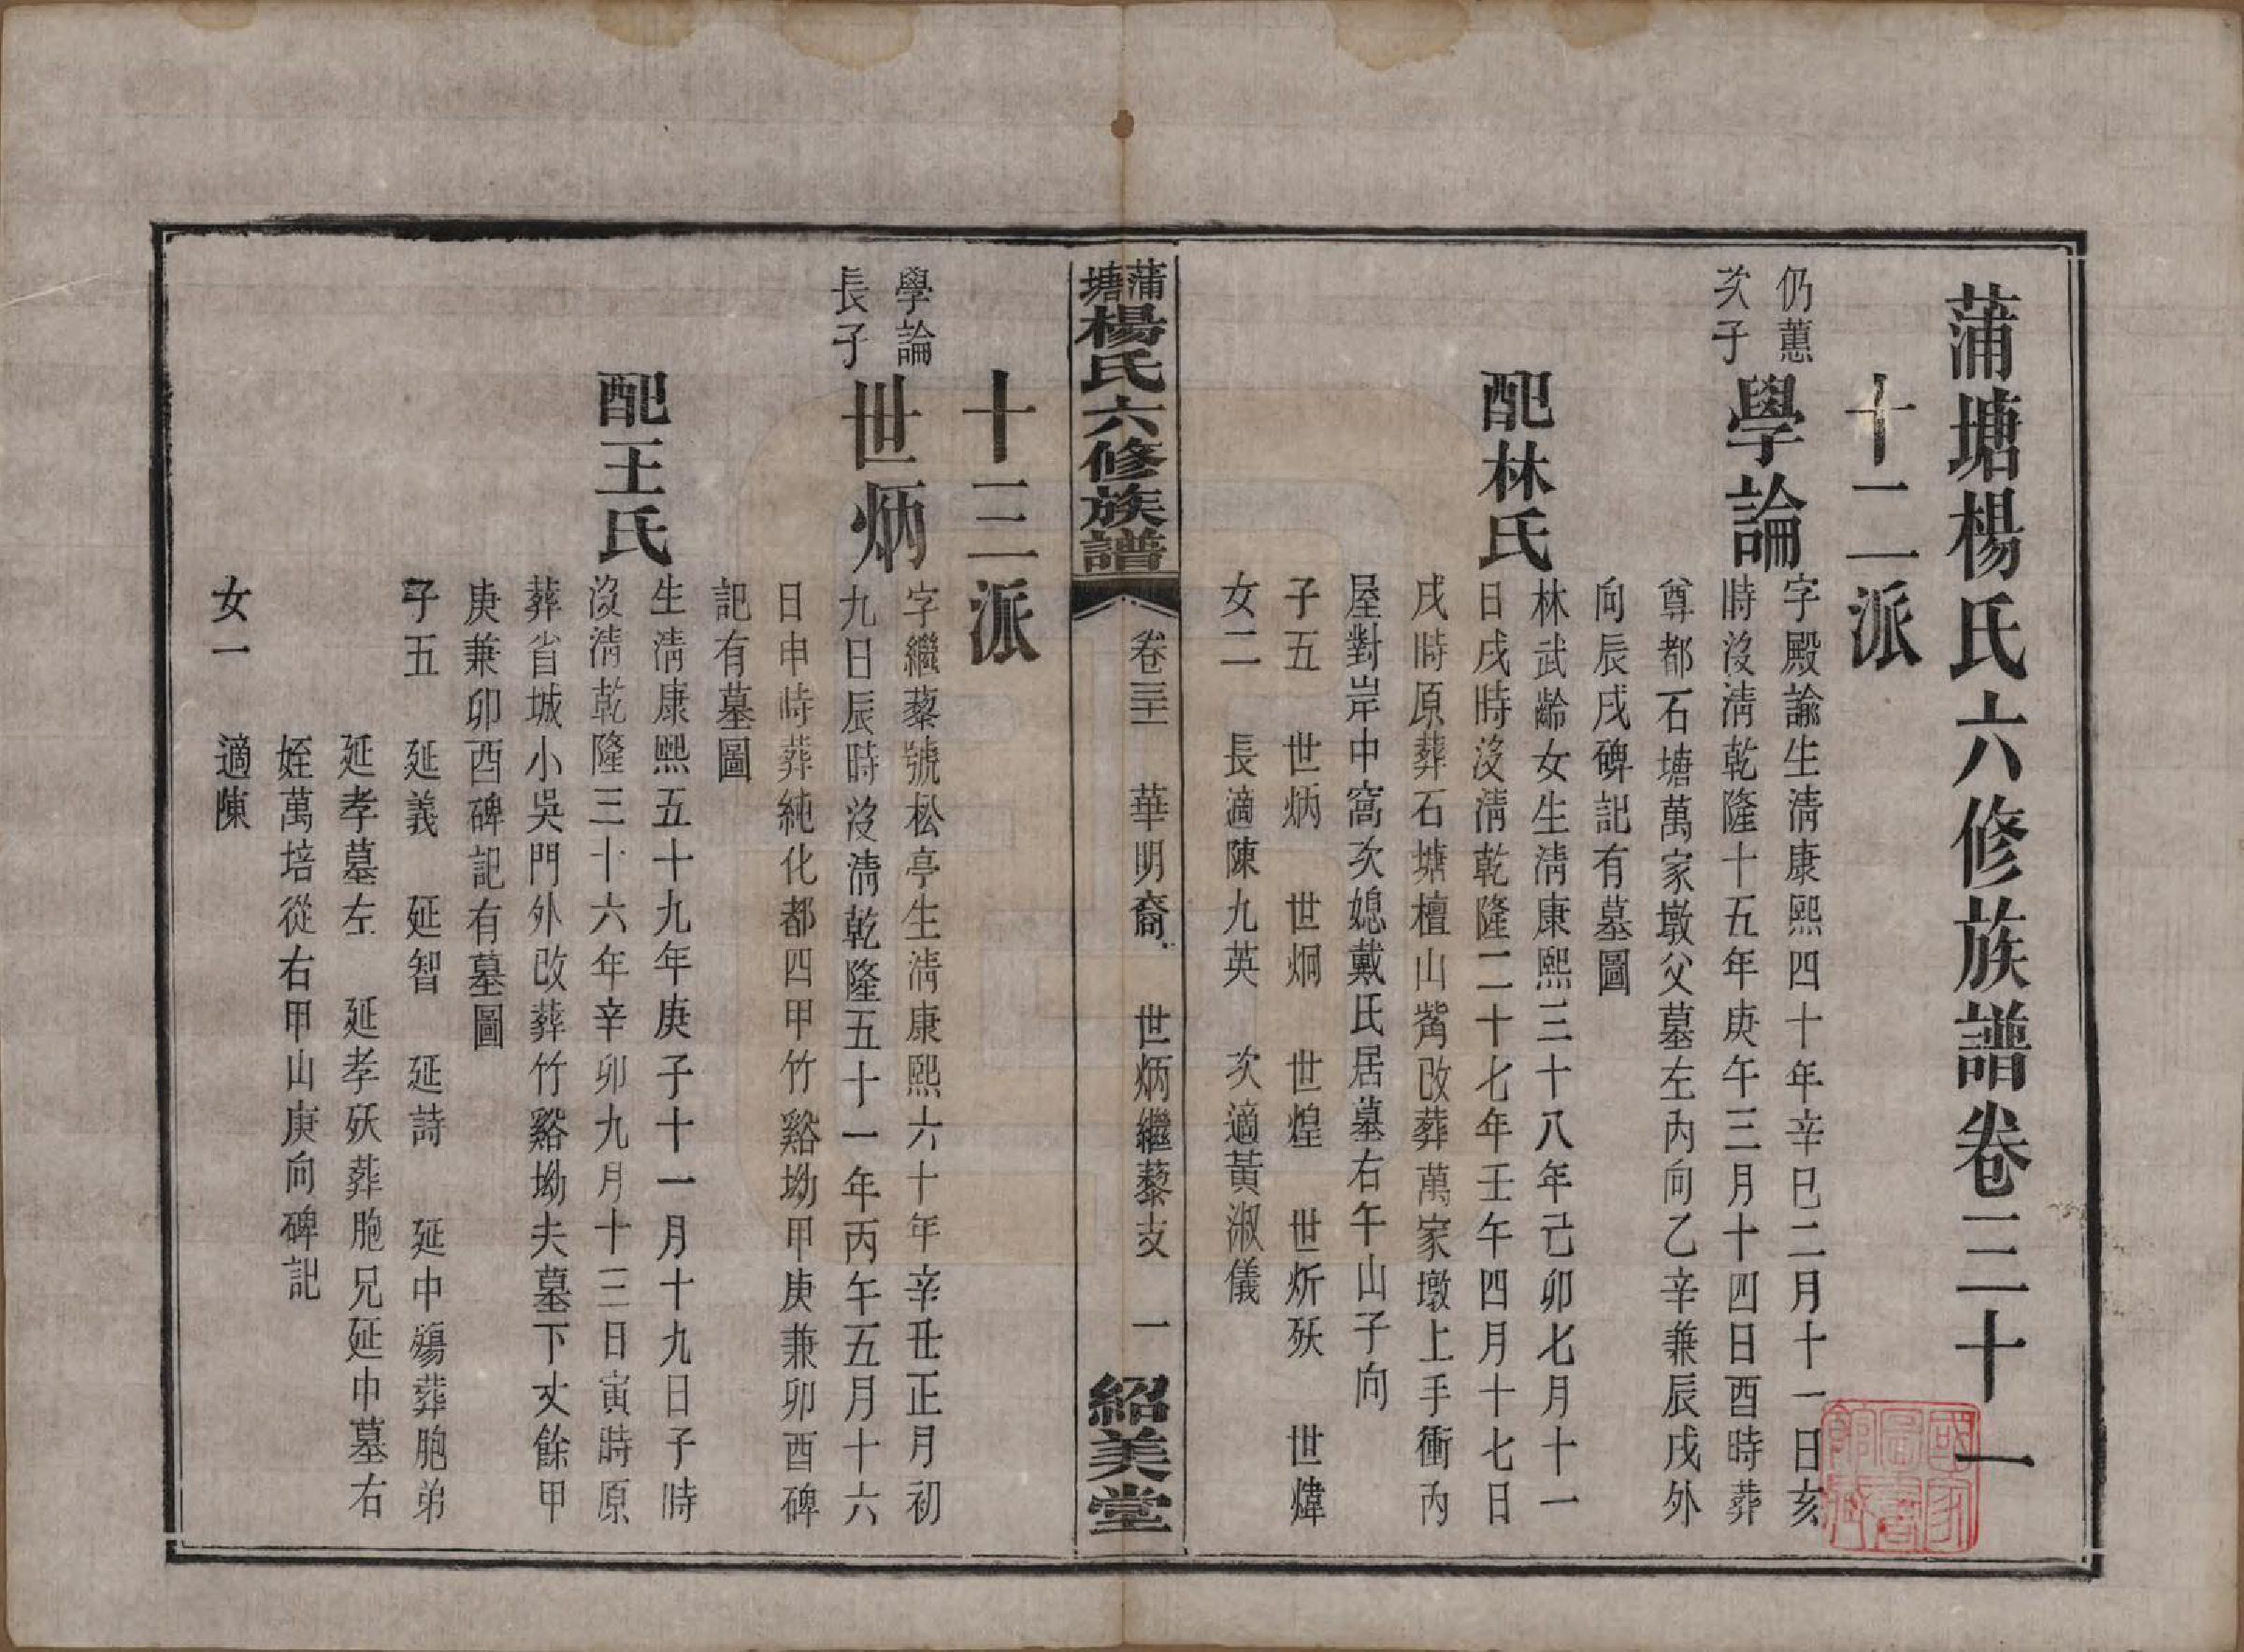 蒲塘楊氏六修族譜卷三十一
十二派
仍蕙
次子
學論
字殿諭生淸康熙四十年辛巳二月十一日亥
時沒淸乾隆十五年庚午三月十四日酉時葬
尊都石塘萬家墩父墓左內向乙辛兼辰戌外
向辰戌碑記有墓圖
配林氏
林武齡女生淸康熙三十八年己卯七月十一
日戌時沒淸乾隆二十七年壬午四月十七日
戌時原葬石塘檀山觜改葬萬家墩上手衝內
屋對岸中窩次媳戴氏居墓右午山子向
子五 世炳 世烱 世煌 世炘殀 世煒
女二 長適陳九英 次適黃淑儀
蒲塘楊氏六修族譜 卷三十一 華明裔 世炳繼藜支 一 紹美堂
十三派
學論
長子
世炳
字繼藜號松亭生淸康熙六十年辛丑正月初
九日辰時沒淸乾隆五十一年丙午五月十六
日申時葬純化都四甲竹谿坳甲庚兼卯酉碑
記有墓圖
配王氏
生淸康熙五十九年庚子十一月十九日子時
沒淸乾隆三十六年辛卯九月十三日寅時原
葬省城小吳門外改葬竹谿坳夫墓下丈餘甲
庚兼卯酉碑記有墓圖
子五 延義 延智 延詩 延中殤葬胞弟
延孝墓左 延孝殀葬胞兄延中墓右
姪萬培從右甲山庚向碑記
女一 適陳